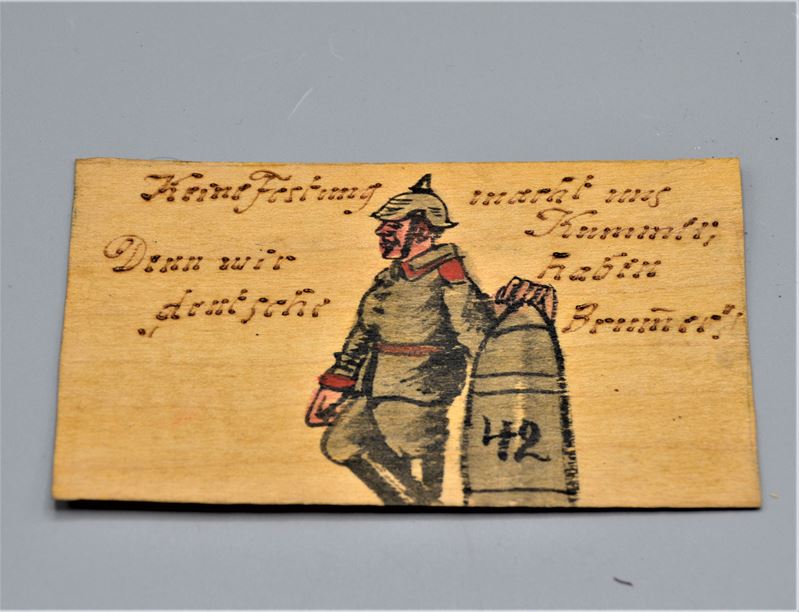 Keine Festung macht uns
Kummer,
Denn wir haben
„deutsche Brummer“!
42